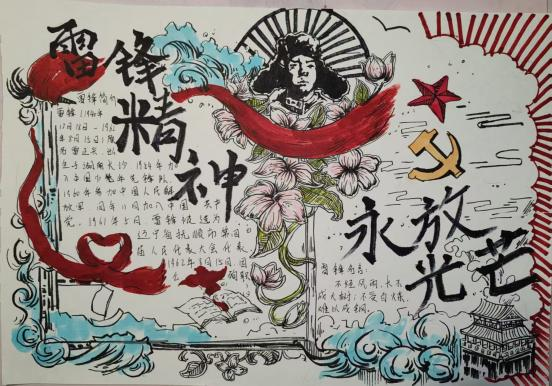 雷锋
精
神
永放
光芒
雷锋简介
雷锋 1940年
12月18日-1962
年8月15日,原
名雷正兴,出
生于湖南长沙 1954年加
入中国少年先锋队
1960年参加中国人民解
放军 同年11月加入中国共产
党。1961年5月,雷锋被选为
辽宁省抚顺市第四
届人民代表大会代表
1962年8月15日,因
公 殉职
雷锋名言:
不经风雨,长不
成大树;不受百炼,
难以成钢。